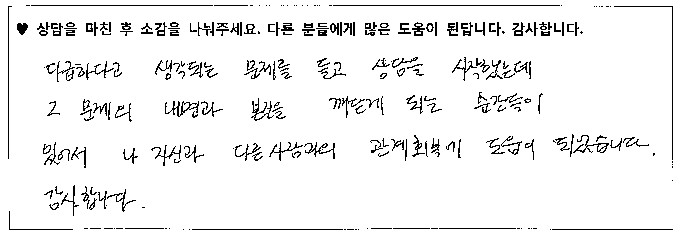 ♥ 상담을 마친 후 소감을 나눠주세요. 다른 분들에게 많은 도움이 된답니다. 감사합니다.
다급하다고 생각되는 문제를 들고 상담을 시작했는데
그 문제의 내면과 본질을 깨닫게 되는 순간들이
있어서 나 자신과 다른 사람과의 관계회복에 도움이 되었습니다.
감사합니다.